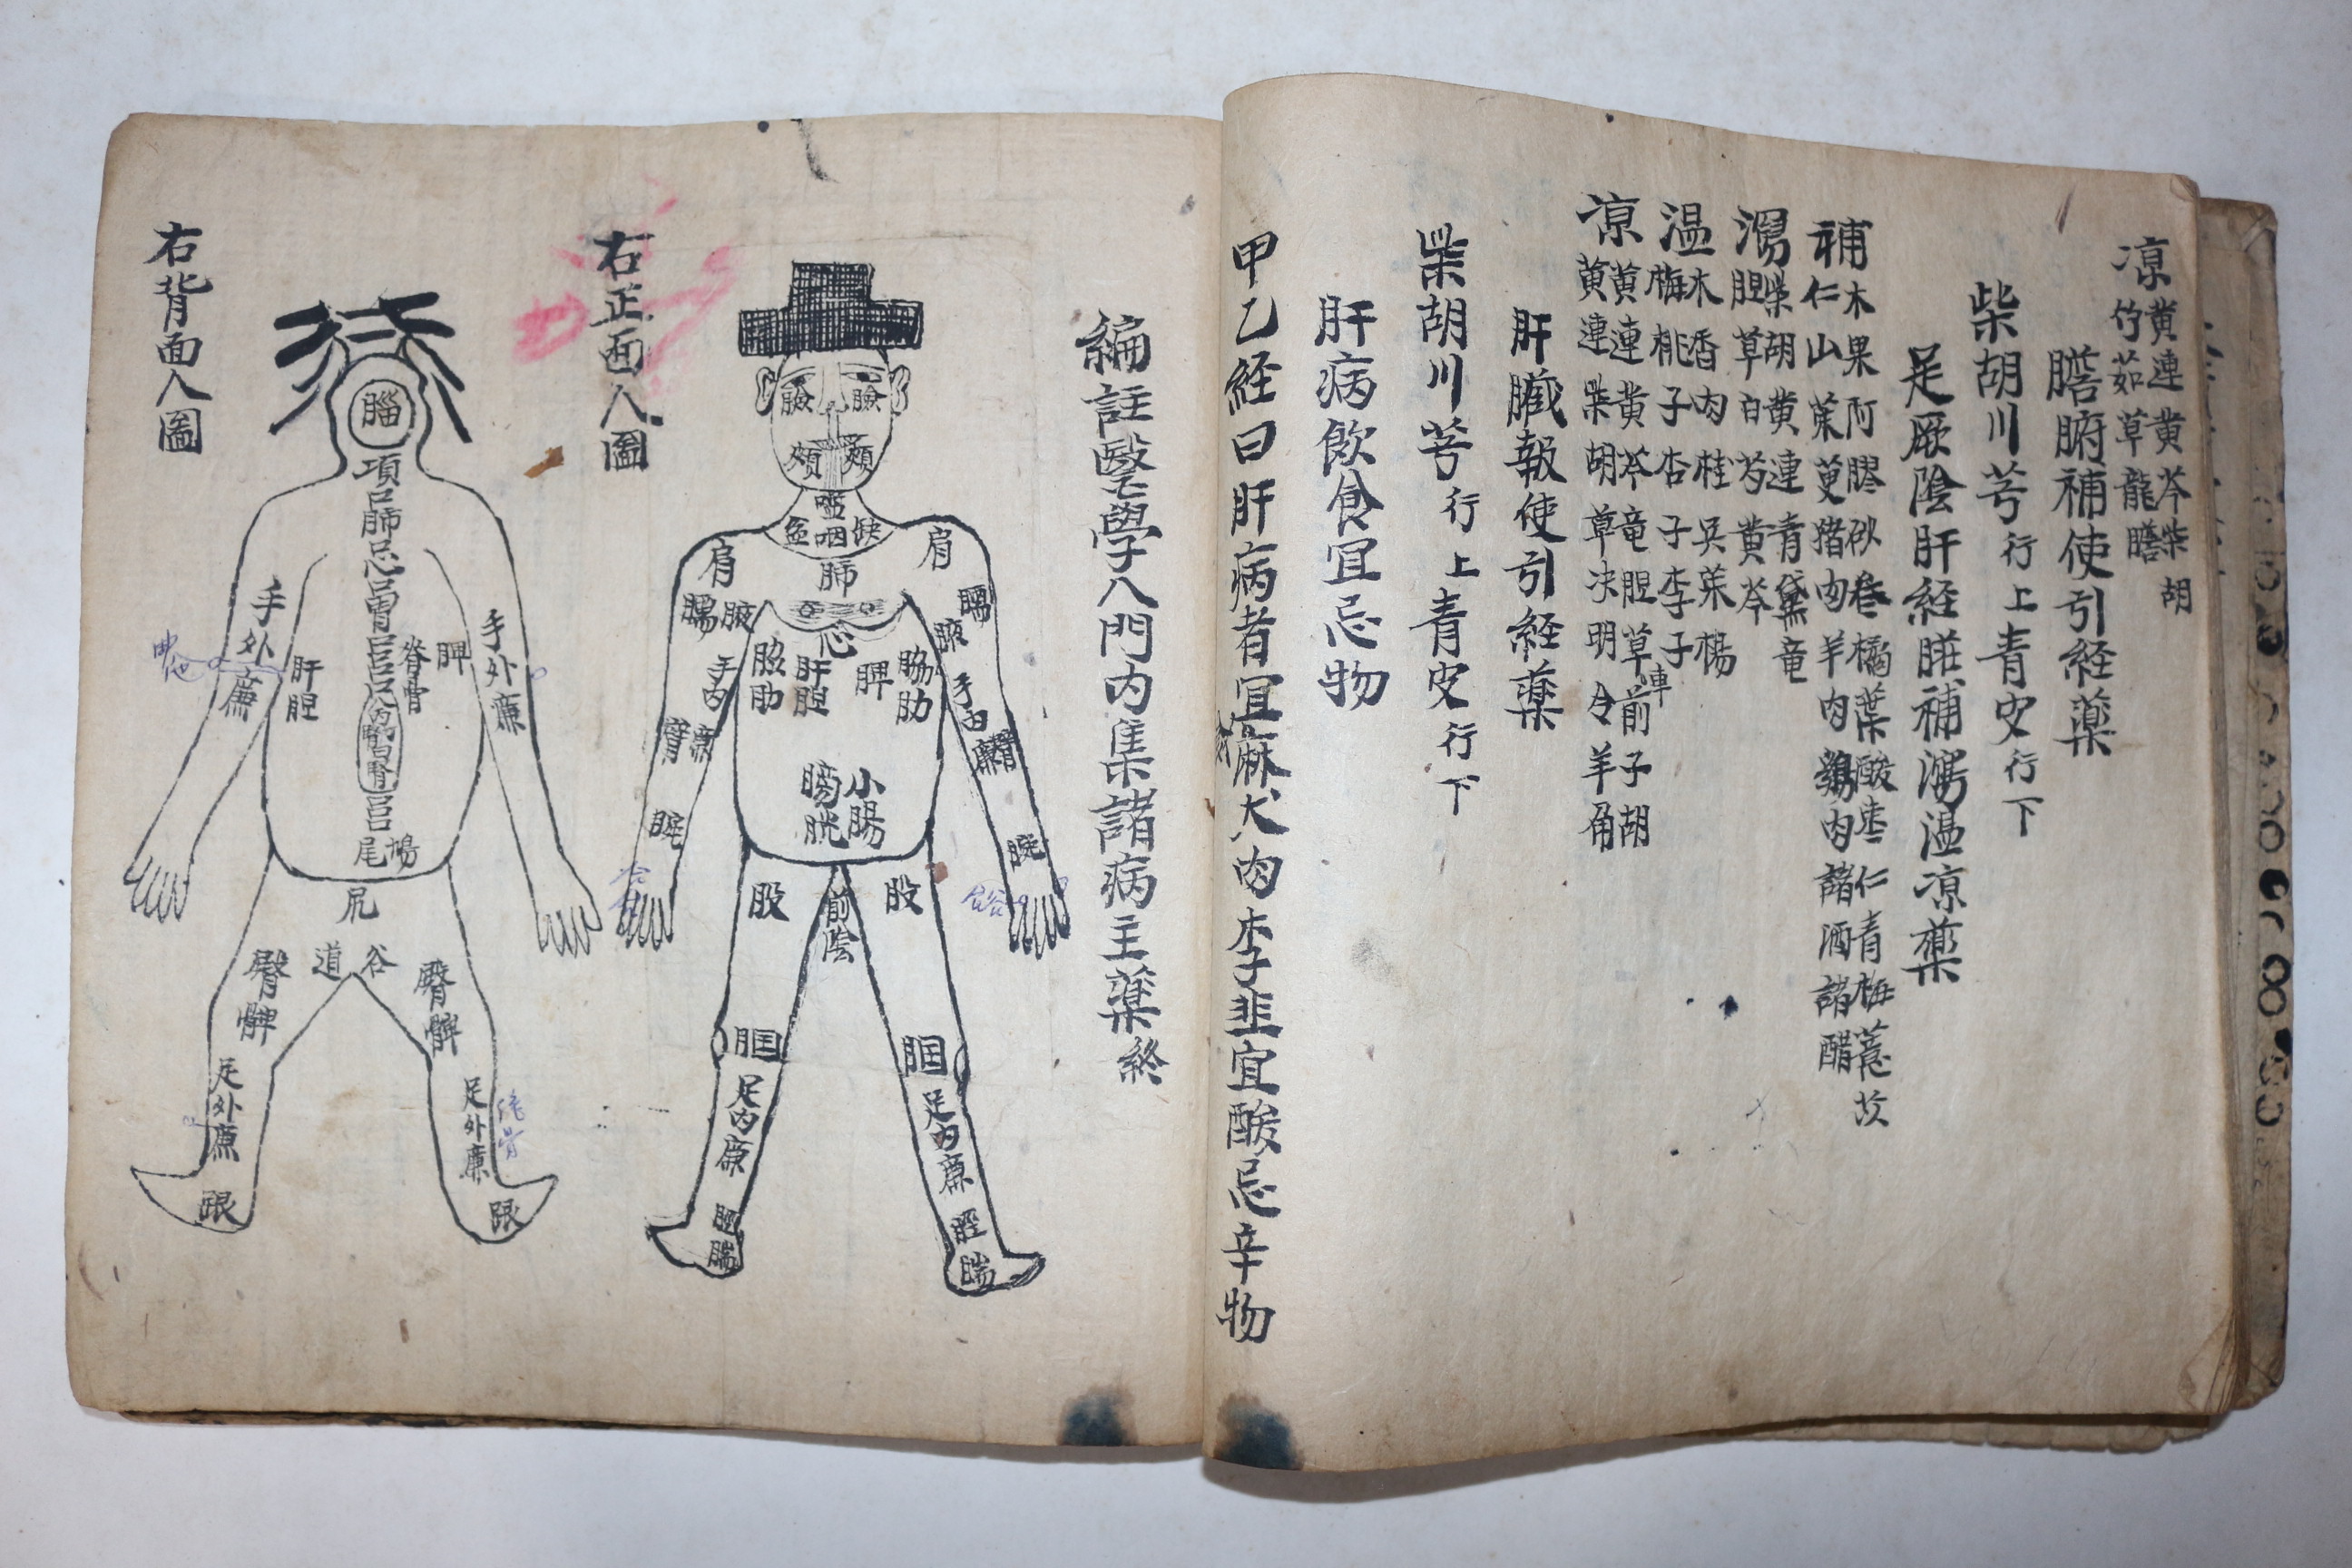 凉 黄連黄芩柴胡
竹茹草龍膽
膽腑補使引経藥
柴胡川芎行上青皮行下
足厥陰肝経胠補瀉温凉藥
補 木果阿膠砂卷橘葉酸枣仁青梅薏苡
仁山茱萸猪肉羊肉鷄肉諸酒諸醋
瀉 柴胡黄連青黛竜
胆草白芍黄芩
温 木香肉桂吳茱楊
梅桃子杏子李子
凉 黄連黄芩竜胆草車前子胡
黄連柴胡草决明令羊角
肝臟報使引経藥
柴胡川芎行上青皮行下
肝病飲食宜忌物
甲乙経曰肝病者宜麻犬肉李韭宜酸忌辛物
編註醫學入門内集諸病主藥終
右正面人圖
臉 臉
頰 頰
咽
缺
盆
肩 肩
肺
臑 臑
腋 腋
心
肝
胆
脾
脇肋
脇肋
手内廉
手内廉
臂 臂
腕
小腸
膀胱
股 股
前陰
膕 膕
足内廉 足内廉
脛 脛
腨 腨
合谷
合谷
右背面人圖
腦
項
肺
忌
胃
脊骨
脾
肝
胆
手外廉 手外廉
腎
尾
尻
谷
道
臀 臀
髀 髀
足外廉 足外廉
跟 跟